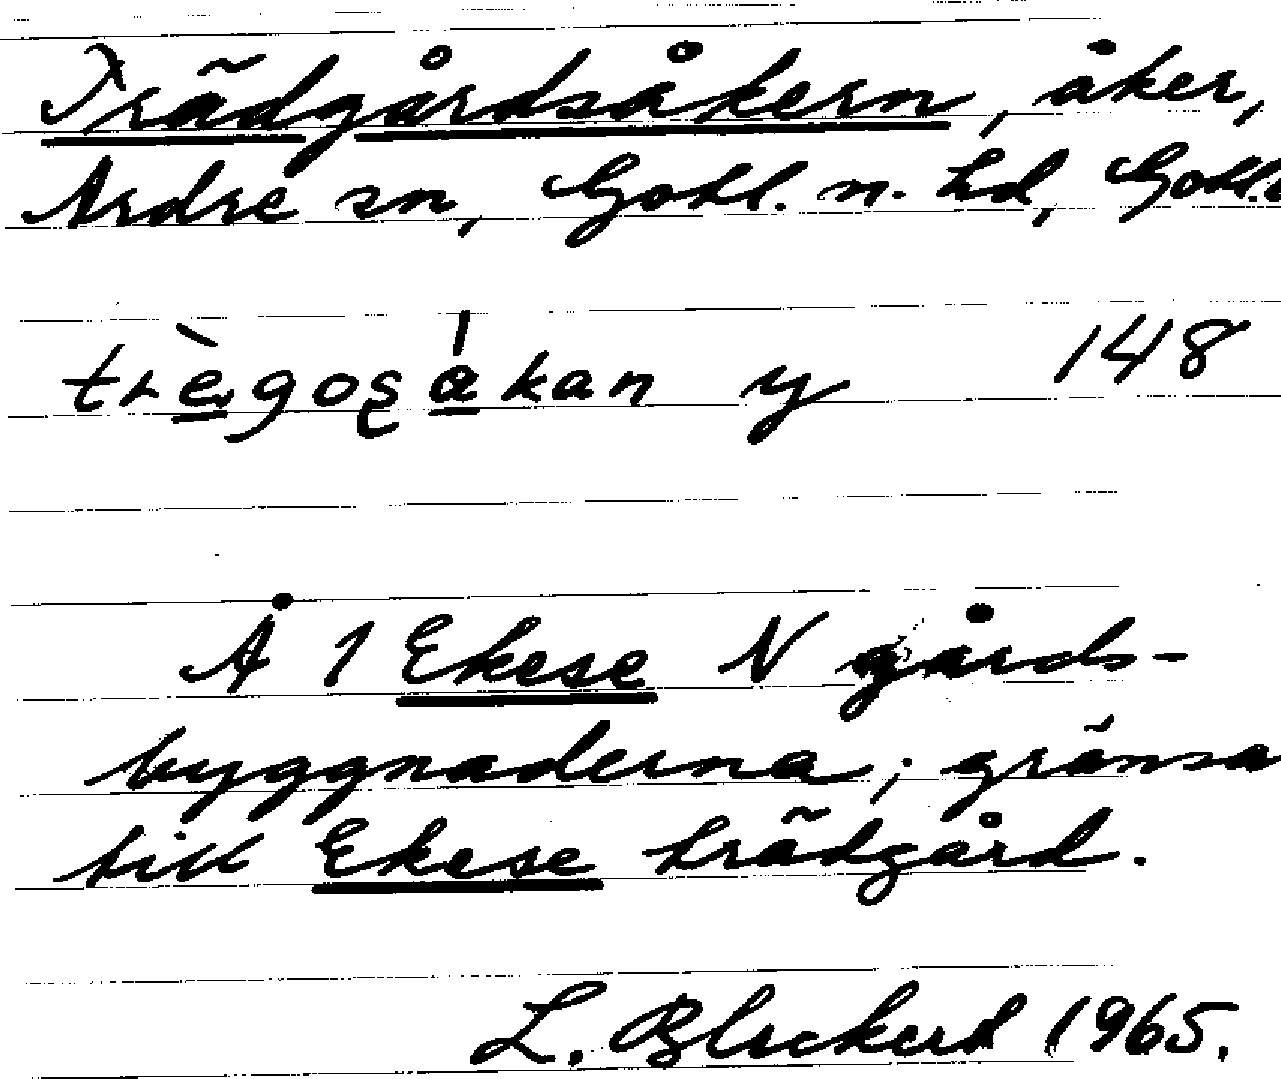 Trädgårdsåkern, åker,
Ardre sn, Gotl. n. hd, Gotl.
trègosákan y 148
Å 1 Ekese N gårds-
byggnaderna; gränsa
till Ekese trädgård.
L. Bleckert 1965.